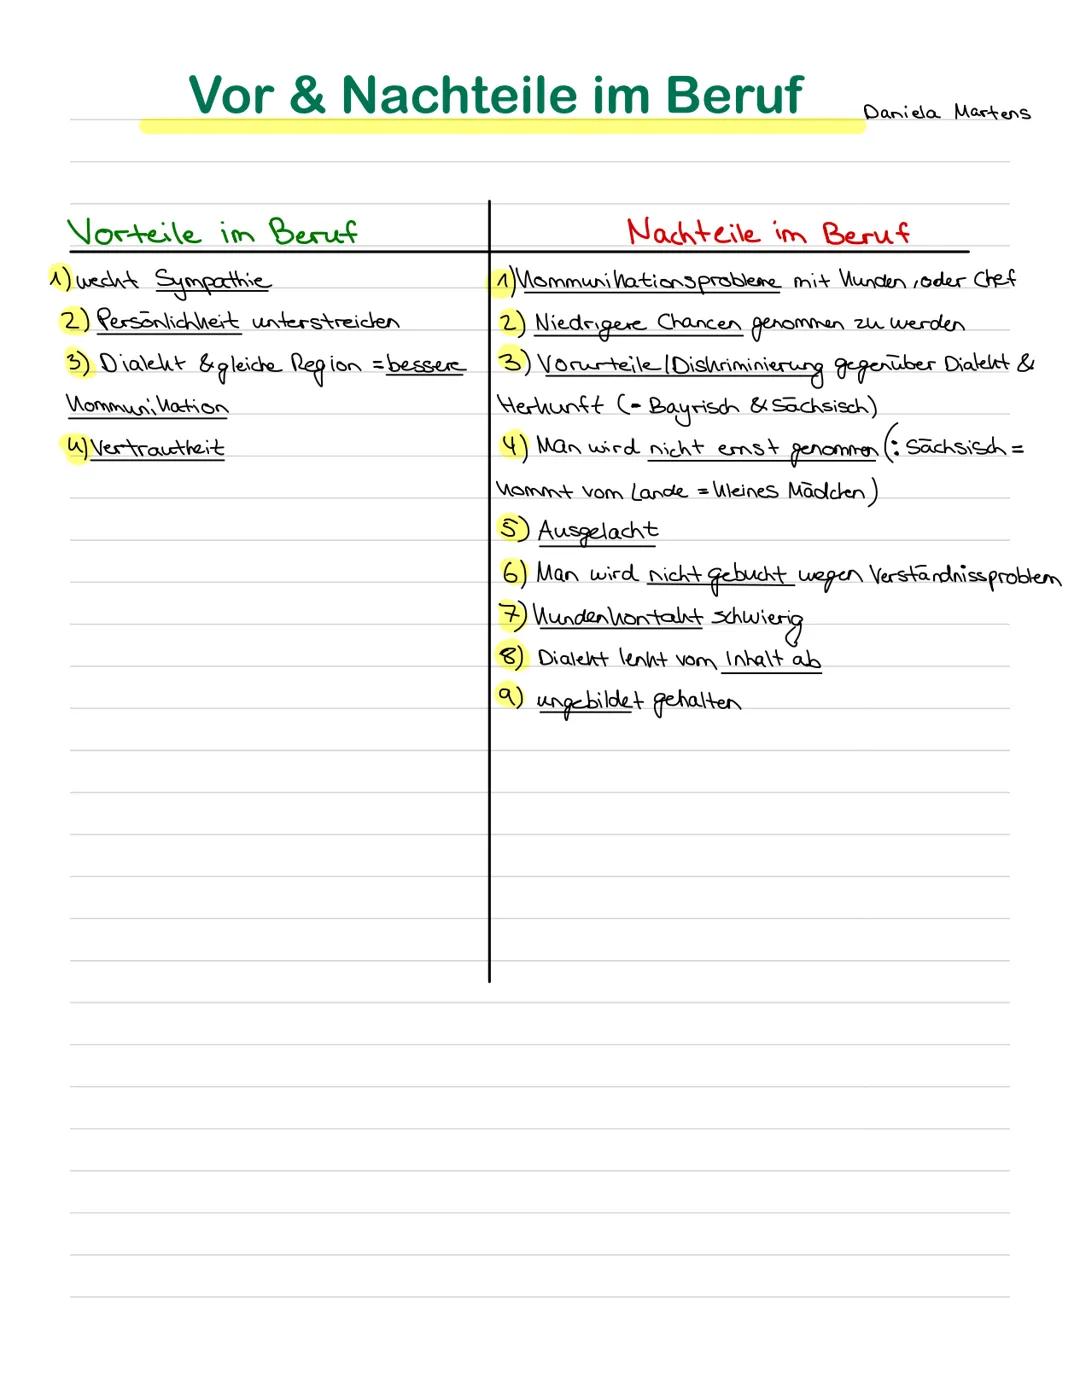 Vor & Nachteile im Beruf
Daniela Martens
Vorteile im Beruf
1) weckt Sympathie
2) Persönlichkeit unterstreichen
3) Dialekt & gleiche Region = bessere
Kommunikation
4) Vertrautheit
Nachteile im Beruf
1) Kommunikationsprobleme mit Kunden, oder Chef
2) Niedrigere Chancen genommen zu werden
3) Vorurteile/Diskriminierung gegenüber Dialekt &
Herkunft (- Bayrisch & Sächsisch)
4) Man wird nicht ernst genommen (: Sächsisch =
kommt vom Lande = kleines Mädchen)
5) Ausgelacht
6) Man wird nicht gebucht wegen Verständnissproblem
7) Kundenkontakt schwierig
8) Dialekt lenkt vom Inhalt ab
9) ungebildet gehalten